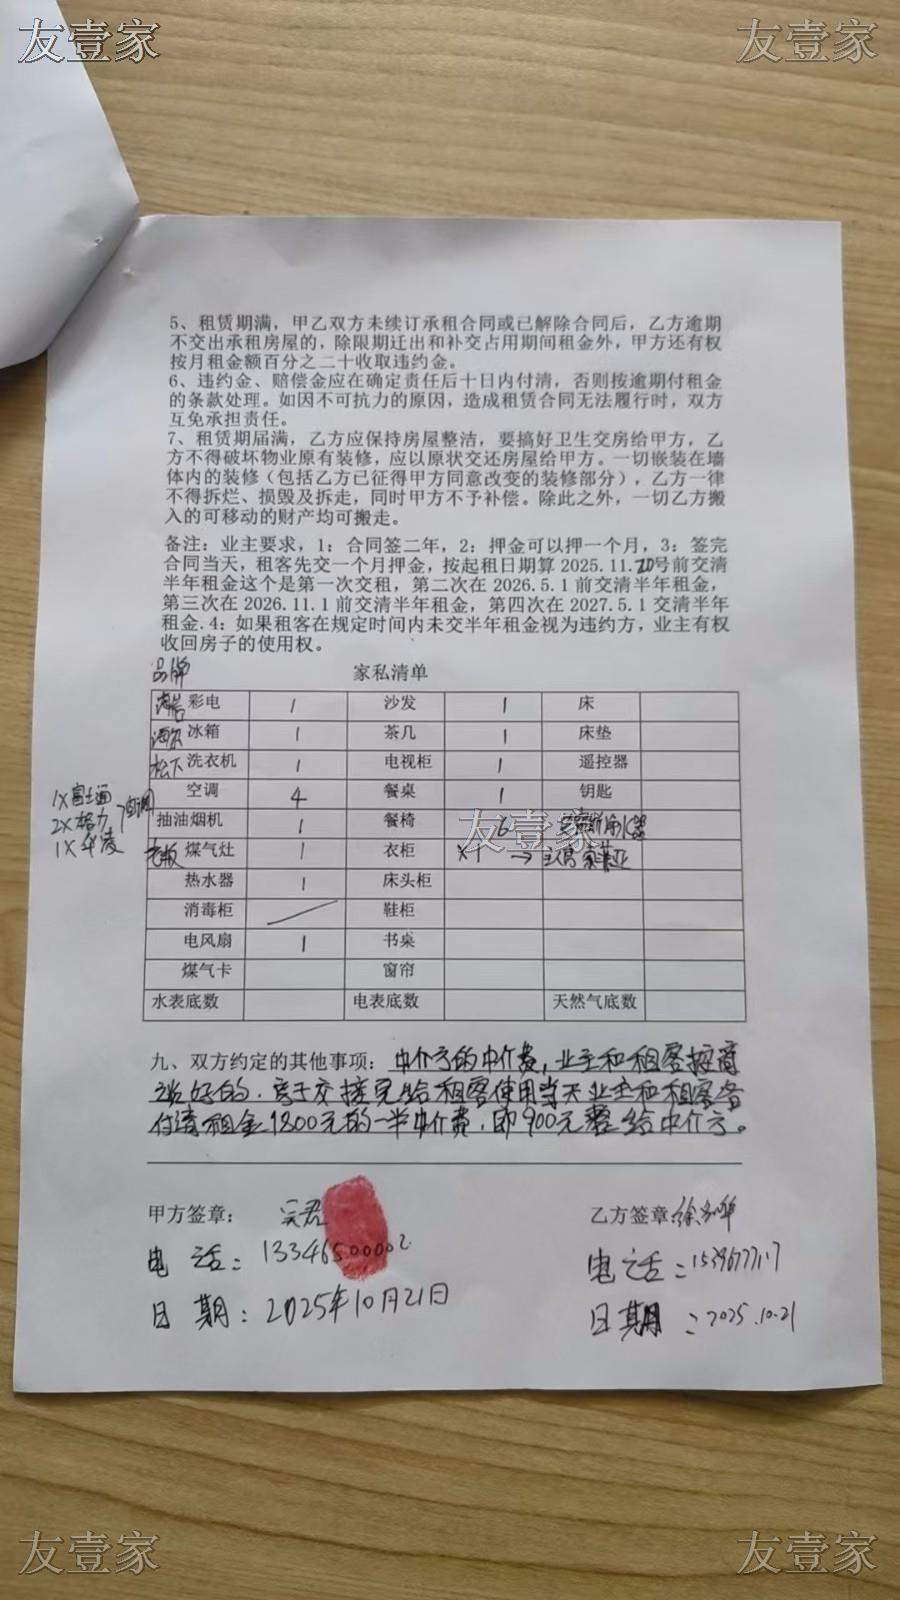 友壹家 友壹家
5、租赁期满，甲乙双方未续订承租合同或已解除合同后，乙方逾期
不交出承租房屋的，除限期迁出和补交占用期间租金外，甲方还有权
按月租金额百分之二十收取违约金。
6、违约金、赔偿金应在确定责任后十日内付清，否则按逾期付租金
的条款处理。如因不可抗力的原因，造成租赁合同无法履行时，双方
互免承担责任。
7、租赁期届满，乙方应保持房屋整洁，要搞好卫生交房给甲方，乙
方不得破坏物业原有装修，应以原状交还房屋给甲方。一切嵌装在墙
体内的装修（包括乙方已征得甲方同意改变的装修部分），乙方一律
不得拆烂、损毁及拆走，同时甲方不予补偿。除此之外，一切乙方搬
入的可移动的财产均可搬走。
备注：业主要求，1：合同签二年，2：押金可以押一个月，3：签完
合同当天，租客先交一个月押金，按起租日期算 2025.11.20号前交清
半年租金这个是第一次交租，第二次在 2026.5.1 前交清半年租金，
第三次在 2026.11.1 前交清半年租金，第四次在 2027.5.1 交清半年
租金.4：如果租客在规定时间内未交半年租金视为违约方，业主有权
收回房子的使用权。
品牌 家私清单
彩电 1 沙发 1 床
冰箱 1 茶几 1 床垫
松下 洗衣机 1 电视柜 1 遥控器
空调 4 餐桌 1 钥匙
1×富士通
2×格力 空调
1×华凌
抽油烟机 1 餐椅 6
老板 煤气灶 1 衣柜 ×1 → 索菲亚
热水器 1 床头柜
消毒柜 鞋柜
电风扇 1 书桌
煤气卡 窗帘
水表底数 电表底数 天然气底数
友壹家
九、双方约定的其他事项：中介方的中介费，业主和租客按商
谈好的，房子交接完给租客使用当天业主和租客各
付清租金1800元的一半中介费，即900元整给中介方。
甲方签章： 吴君 乙方签章：
电话：13346500002 电话：
日期：2025年10月21日 日期：2025.10.21
友壹家 友壹家